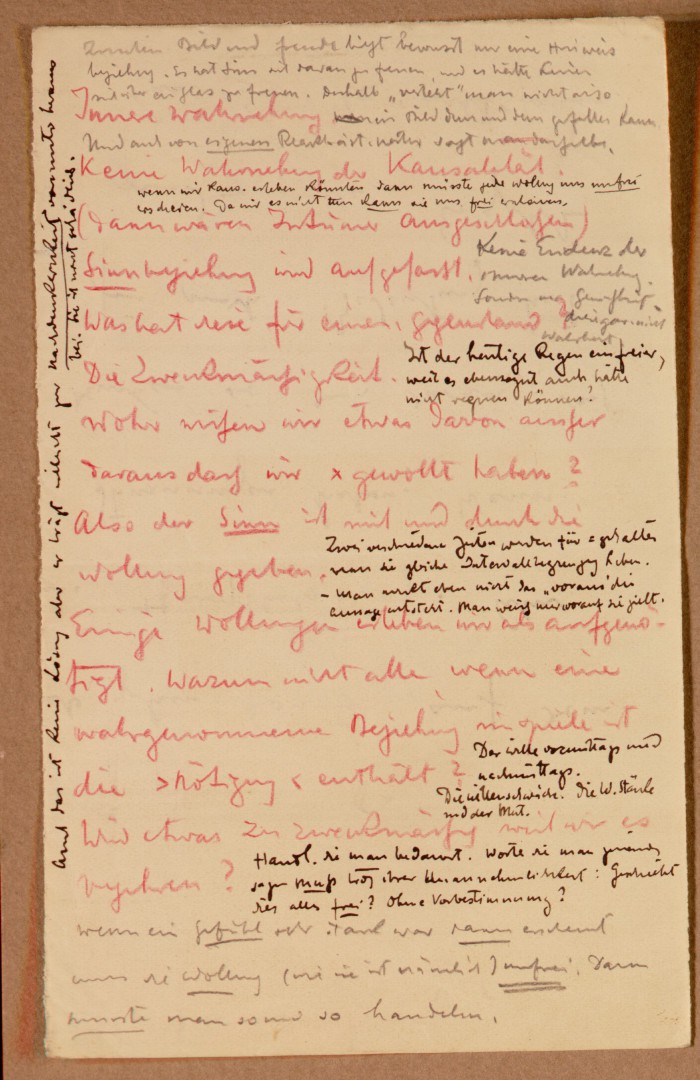 Zwischen Bild und Freude liegt bewusst nur eine Hinweis
beziehung. Es hat Sinn sich daran zu freuen, und es hätte keinen
sich über ein Glas zu freuen. Deshalb "versteht" man nicht also
Innere Wahrnehmung ein Bild dem und dem gefallen kann.
Und auch von eigenem sagt man dasselbe.
Keine Wahrnehmung der Kausalität.
wenn wir Kaus. erleben könnten dann müsste jede Wollung uns unfrei
erscheinen. Da wir es nicht tun kann sie uns frei erscheinen.
(Dann wären Irrtümer ausgeschlossen)
Keine Evidenz der
inneren Wahrnehmg.
Sinnbeziehung wird aufgefasst.
Sondern nur
Was hat diese für einen Gegenstand?
Wahrheit
Ist der heutige Regen ein freier,
Die Zweckmässigkeit.
weil es ebensogut auch hätte
nicht regnen können?
Woher wissen wir etwas davon ausser
daraus dass wir x gewollt haben?
Also der Sinn ist mit und durch die
Zwei verschiedene Zeiten werden für = gehalten
wenn sie gleiche Intervallbegrenzung haben.
Wollung gegeben.
– Man merkt eben nicht das "voraus" die
Man weiss nur worauf sie zielt.
Einige Wollungen erleben wir als aufgenö-
tigt. Warum nicht alle wenn eine
wahrgenommene Beziehung im Spiele ist
Der Wille vormittags und
nachmittags.
die >Nötigung< enthält?
Die Willensschwäche. Die W. Stärke
und der Mut.
Wird etwas zu zweckmässig weil wir es
Handl. die man bedauert. Worte die man
begehren?
sagen muß trotz ihrer Unannehmlichkeit: Geschieht
dies alles frei? Ohne Vorbestimmung?
Wenn ein Gefühl sehr stark war dann erscheint
uns die Wollung (wie sie ist nämlich) unfrei. Dann
musste man so und so handeln.
Auch das ist keine Lösung aber es trägt vielleicht zur Nachdenklichkeit
bei. Sie ist nicht schädlich.